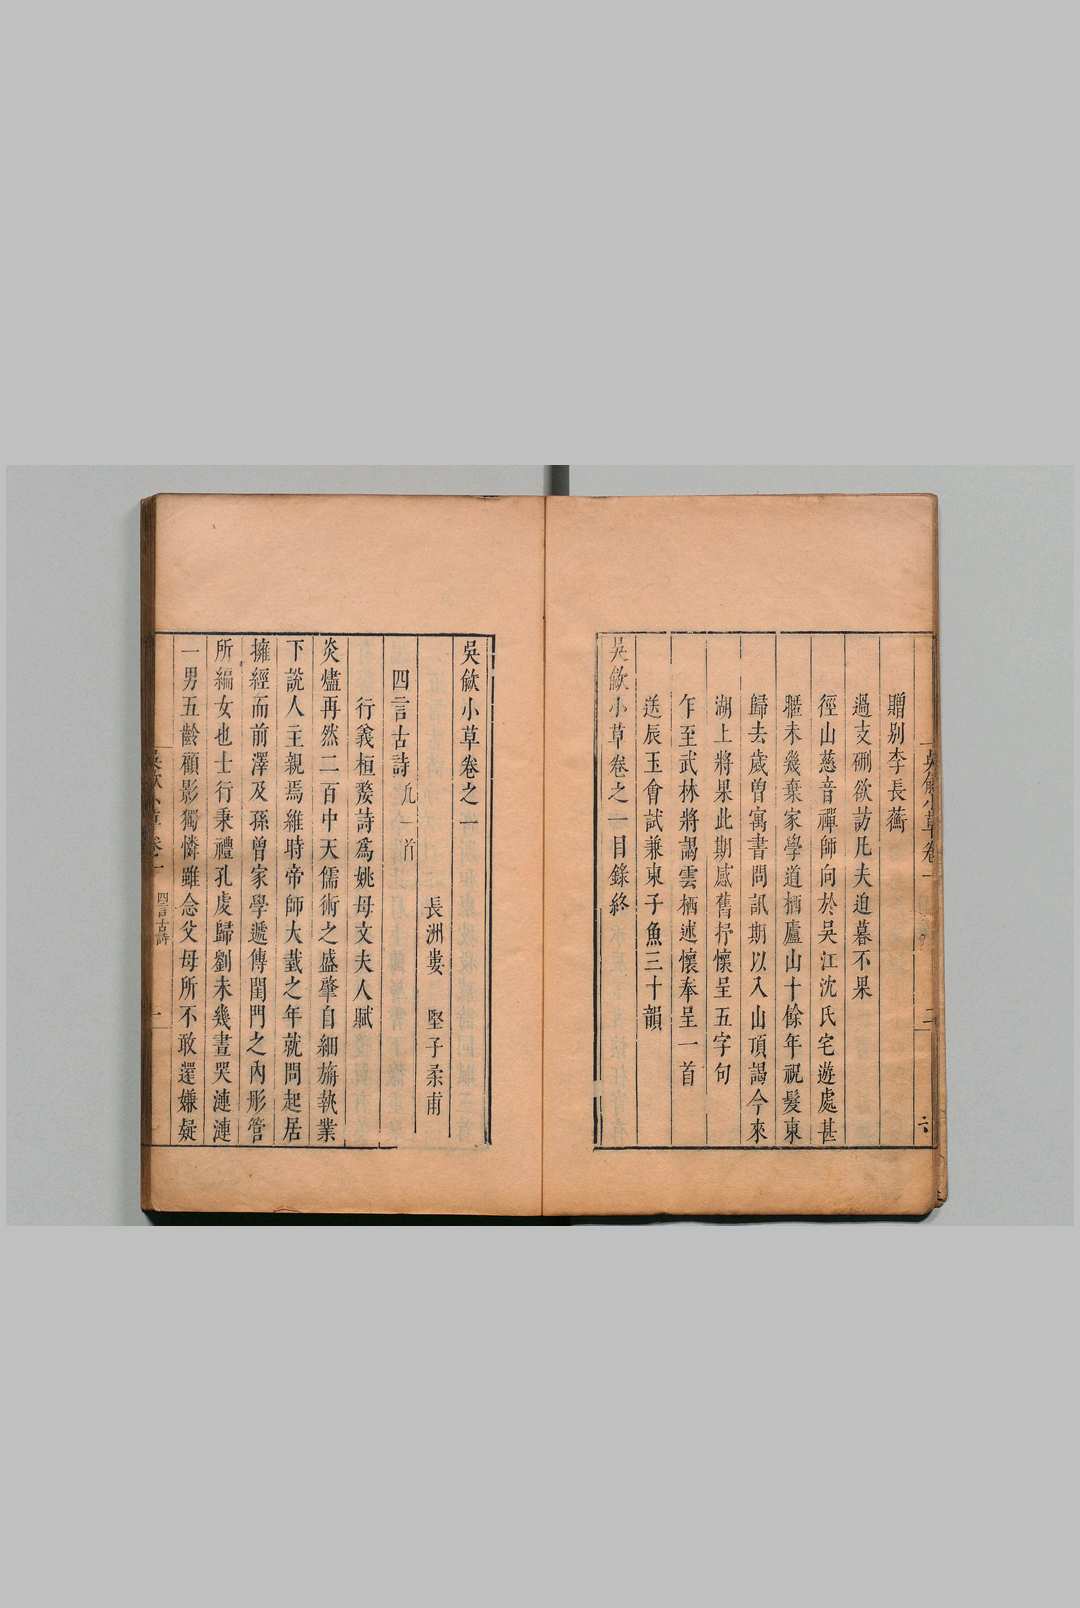 贈別李長蘅
過支硎欲訪凡夫迫暮不果
徑山慈音禪師向於吳江沈氏宅遊處甚
驩未幾棄家學道栖廬山十餘年祝髮東
歸去歲曾寓書問訊期以入山頂謁今來
湖上將果此期感舊抒懷呈五字句
乍至武林將謁雲栖述懷奉呈一首
送辰玉會試兼柬子魚三十韻
吳歈小草卷之一目錄終
吳歈小草卷之一
長洲婁 堅子柔甫
四言古詩 九一首
行義桓嫠詩爲姚母文夫人賦
炎燼再然二百中天儒術之盛肇自細旃執業
下說人主親焉維時帝師大耋之年就問起居
擁經而前澤及孫曾家學遞傳閨門之內彤管
所編女也士行秉禮孔虔歸劉未幾晝哭漣漣
一男五齡顧影獨憐雖念父母所不敢還嫌疑
吳歈小草 卷一 四言古詩 一